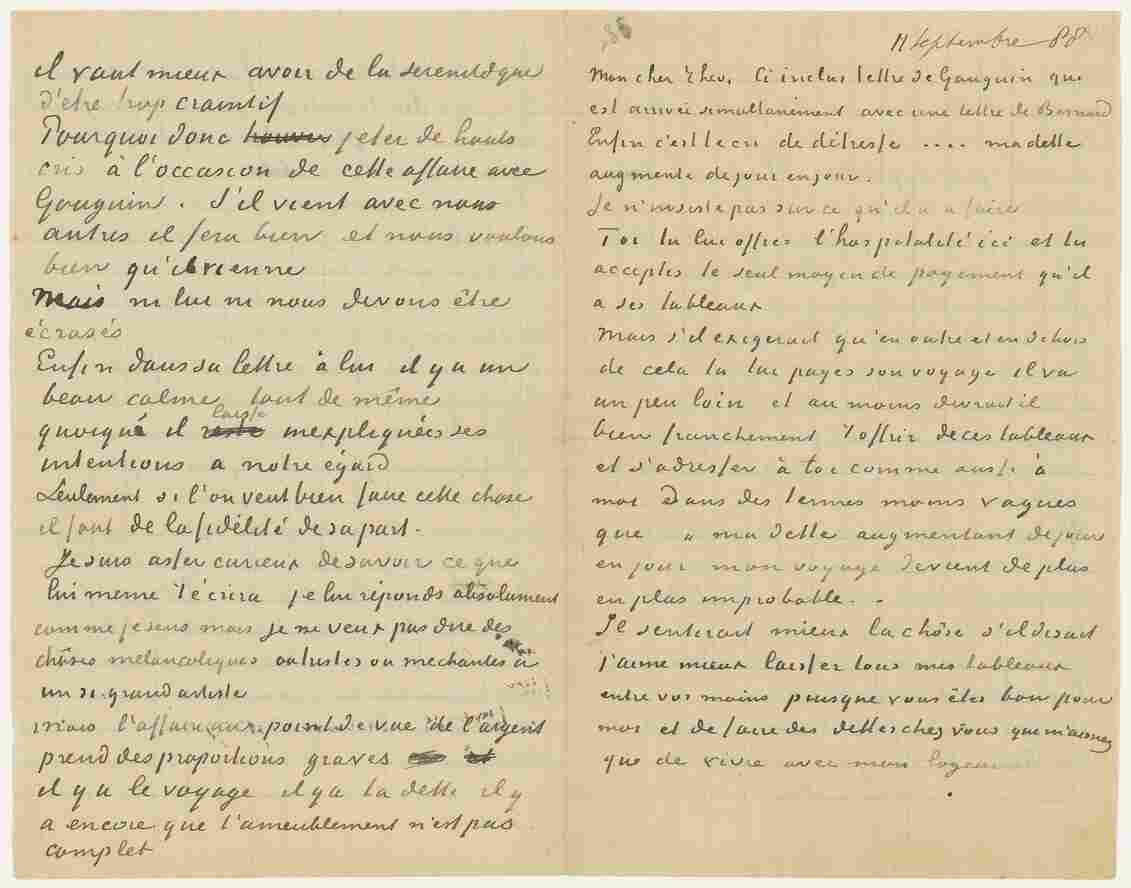 il vaut mieux avoir de la serenité que
d'etre trop craintif
Pourquoi donc jeter de hauts
cris à l'occasion de cette affaire avec
Gauguin. S'il vient avec nous
autres il fera bien et nous voulons
bien qu'il vienne
Mais ni lui ni nous devons être
écrasés
Enfin dans sa lettre à lui il y a un
beau calme tout de même
quoique il laisse inexpliquées ses
intentions a notre égard
Seulement si l'on veut bien faire cette chose
il faut de la fidélité de sa part.
Je suis assez curieux de savoir ce que
lui meme t'écrira je lui réponds absolument
comme je sens mais je ne veux pas dire des
chôses melancoliques ou tristes ou mechantes à
un si grand artiste
mais l'affaire au point de vue de l'argent
prend des proportions graves
il y a le voyage il y a la dette il y
a encore que l'ameublement n'est pas
complet
11 septembre 88
Mon cher Theo, Ci inclus lettre de Gauguin qui
est arrivée simultanément avec une lettre de Bernard
Enfin c'est le cri de détresse .... ma dette
augmente de jour en jour.
Je n'insiste pas sur ce qu'il a a faire
Toi tu lui offres l'hospitalité ici et tu
acceptes le seul moyen de payement qu'il
a ses tableaux
Mais s'il exigerait qu'en outre et en dehors
de cela tu lui payes son voyage il va
un peu loin et au moins devrait il
bien franchement t'offrir de ces tableaux
et s'adresser à toi comme aussi à
moi Dans des termes moins vagues
que „ ma dette augmentant de jour
en jour mon voyage devient de plus
en plus improbable. -
Il sentirait mieux la chôse s'il disait
j'aime mieux laisser tous mes tableaux
entre vos mains puisque vous êtes bon pour
moi et de faire des dettes chez vous qui m'aimez
que de vivre avec mon logeur